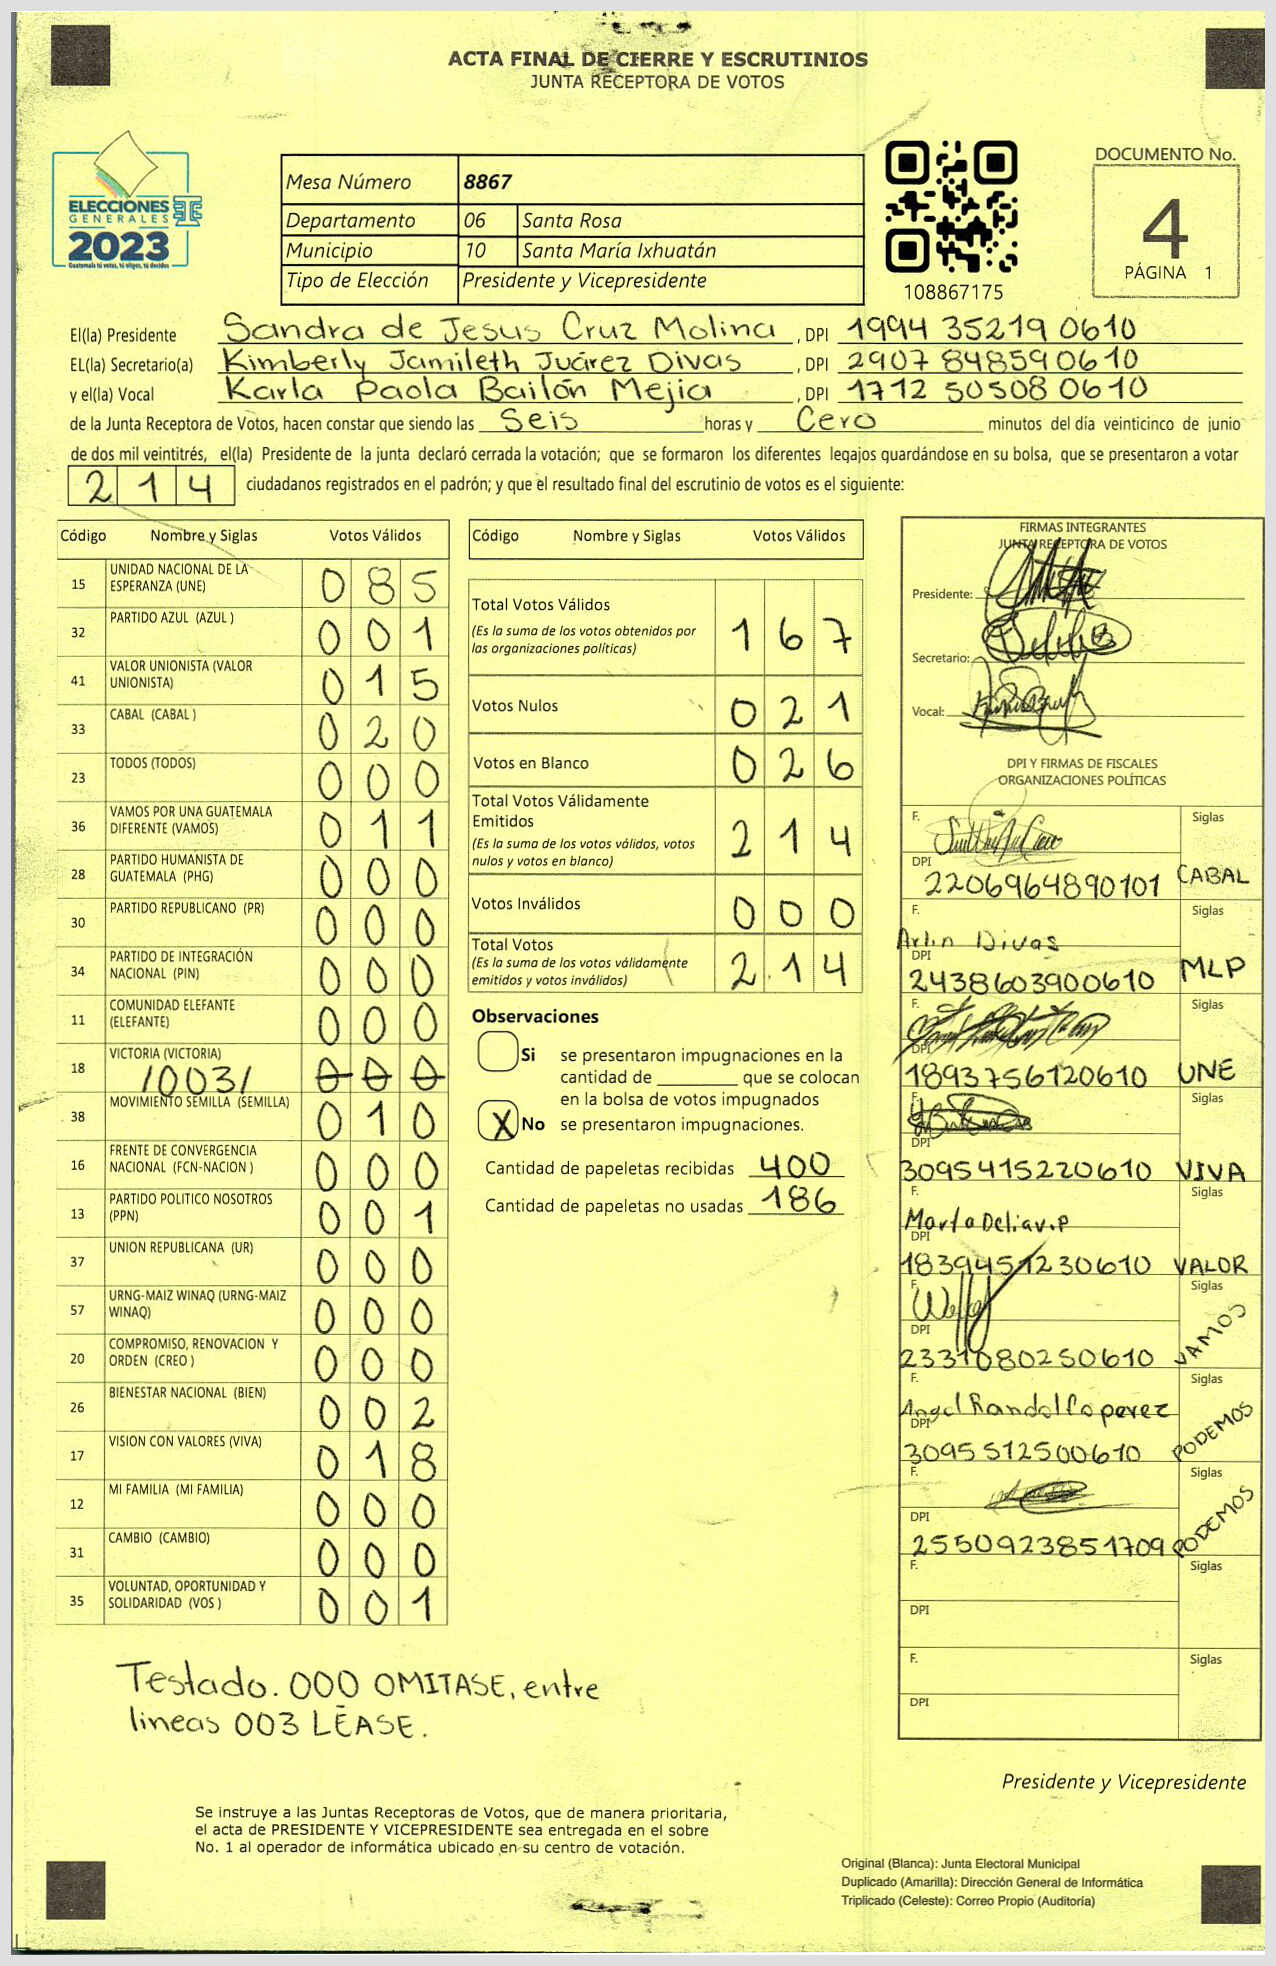 ACTA FINAL DE CIERRE Y ESCRUTINIOS
JUNTA RECEPTORA DE VOTOS
ELECCIONES
GENERALES
2023
Guatemala tú votas, tú eliges, tú decides
Mesa Número 8867
Departamento 06 Santa Rosa
Municipio 10 Santa María Ixhuatán
Tipo de Elección Presidente y Vicepresidente
108867175
DOCUMENTO No.
4
PÁGINA 1
El(la) Presidente Sandra de Jesus Cruz Molina, DPI 1994 35219 0610
EL(la) Secretario(a) Kimberly Jamileth Juárez Divas, DPI 2907 84859 0610
y el(la) Vocal Karla Paola Bailón Mejia, DPI 1712 50508 0610
de la Junta Receptora de Votos, hacen constar que siendo las Seis horas y Cero minutos del día veinticinco de junio
de dos mil veintitrés, el(la) Presidente de la junta declaró cerrada la votación; que se formaron los diferentes legajos guardándose en su bolsa, que se presentaron a votar
214 ciudadanos registrados en el padrón; y que el resultado final del escrutinio de votos es el siguiente:
Código Nombre y Siglas Votos Válidos
15 UNIDAD NACIONAL DE LA ESPERANZA (UNE) 085
32 PARTIDO AZUL (AZUL ) 001
41 VALOR UNIONISTA (VALOR UNIONISTA) 015
33 CABAL (CABAL ) 020
23 TODOS (TODOS) 000
36 VAMOS POR UNA GUATEMALA DIFERENTE (VAMOS) 011
28 PARTIDO HUMANISTA DE GUATEMALA (PHG) 000
30 PARTIDO REPUBLICANO (PR) 000
34 PARTIDO DE INTEGRACIÓN NACIONAL (PIN) 000
11 COMUNIDAD ELEFANTE (ELEFANTE) 000
18 VICTORIA (VICTORIA) /003/ 000
38 MOVIMIENTO SEMILLA (SEMILLA) 010
16 FRENTE DE CONVERGENCIA NACIONAL (FCN-NACION ) 000
13 PARTIDO POLITICO NOSOTROS (PPN) 001
37 UNION REPUBLICANA (UR) 000
57 URNG-MAIZ WINAQ (URNG-MAIZ WINAQ) 000
20 COMPROMISO, RENOVACION Y ORDEN (CREO ) 000
26 BIENESTAR NACIONAL (BIEN) 002
17 VISION CON VALORES (VIVA) 018
12 MI FAMILIA (MI FAMILIA) 000
31 CAMBIO (CAMBIO) 000
35 VOLUNTAD, OPORTUNIDAD Y SOLIDARIDAD (VOS ) 001
Código Nombre y Siglas Votos Válidos
Total Votos Válidos 167
(Es la suma de los votos obtenidos por
las organizaciones políticas)
Votos Nulos 021
Votos en Blanco 026
Total Votos Válidamente
Emitidos 214
(Es la suma de los votos válidos, votos
nulos y votos en blanco)
Votos Inválidos 000
Total Votos 214
(Es la suma de los votos válidamente
emitidos y votos inválidos)
Observaciones
Si se presentaron impugnaciones en la
cantidad de ________ que se colocan
en la bolsa de votos impugnados
X No se presentaron impugnaciones.
Cantidad de papeletas recibidas 400
Cantidad de papeletas no usadas 186
FIRMAS INTEGRANTES
JUNTA RECEPTORA DE VOTOS
Presidente:
Secretario:
Vocal:
DPI Y FIRMAS DE FISCALES
ORGANIZACIONES POLÍTICAS
F. Siglas
DPI
2206964890101 CABAL
F. Siglas
Arlin Divas
DPI
2438603900610 MLP
F. Siglas
DPI
1893756120610 UNE
F. Siglas
DPI
3095415220610 VIVA
F. Siglas
Marta Deliav.P
DPI
1839451230610 VALOR
F. Siglas
DPI
2331080250610 VAMOS
F. Siglas
Angel Randolfo perez
DPI
3095512500610 PODEMOS
F. Siglas
DPI
2550923851709 PODEMOS
F. Siglas
DPI
F. Siglas
DPI
Testado. 000 OMITASE, entre
lineas 003 LÉASE.
Presidente y Vicepresidente
Se instruye a las Juntas Receptoras de Votos, que de manera prioritaria,
el acta de PRESIDENTE Y VICEPRESIDENTE sea entregada en el sobre
No. 1 al operador de informática ubicado en su centro de votación.
Original (Blanca): Junta Electoral Municipal
Duplicado (Amarilla): Dirección General de Informática
Triplicado (Celeste): Correo Propio (Auditoría)